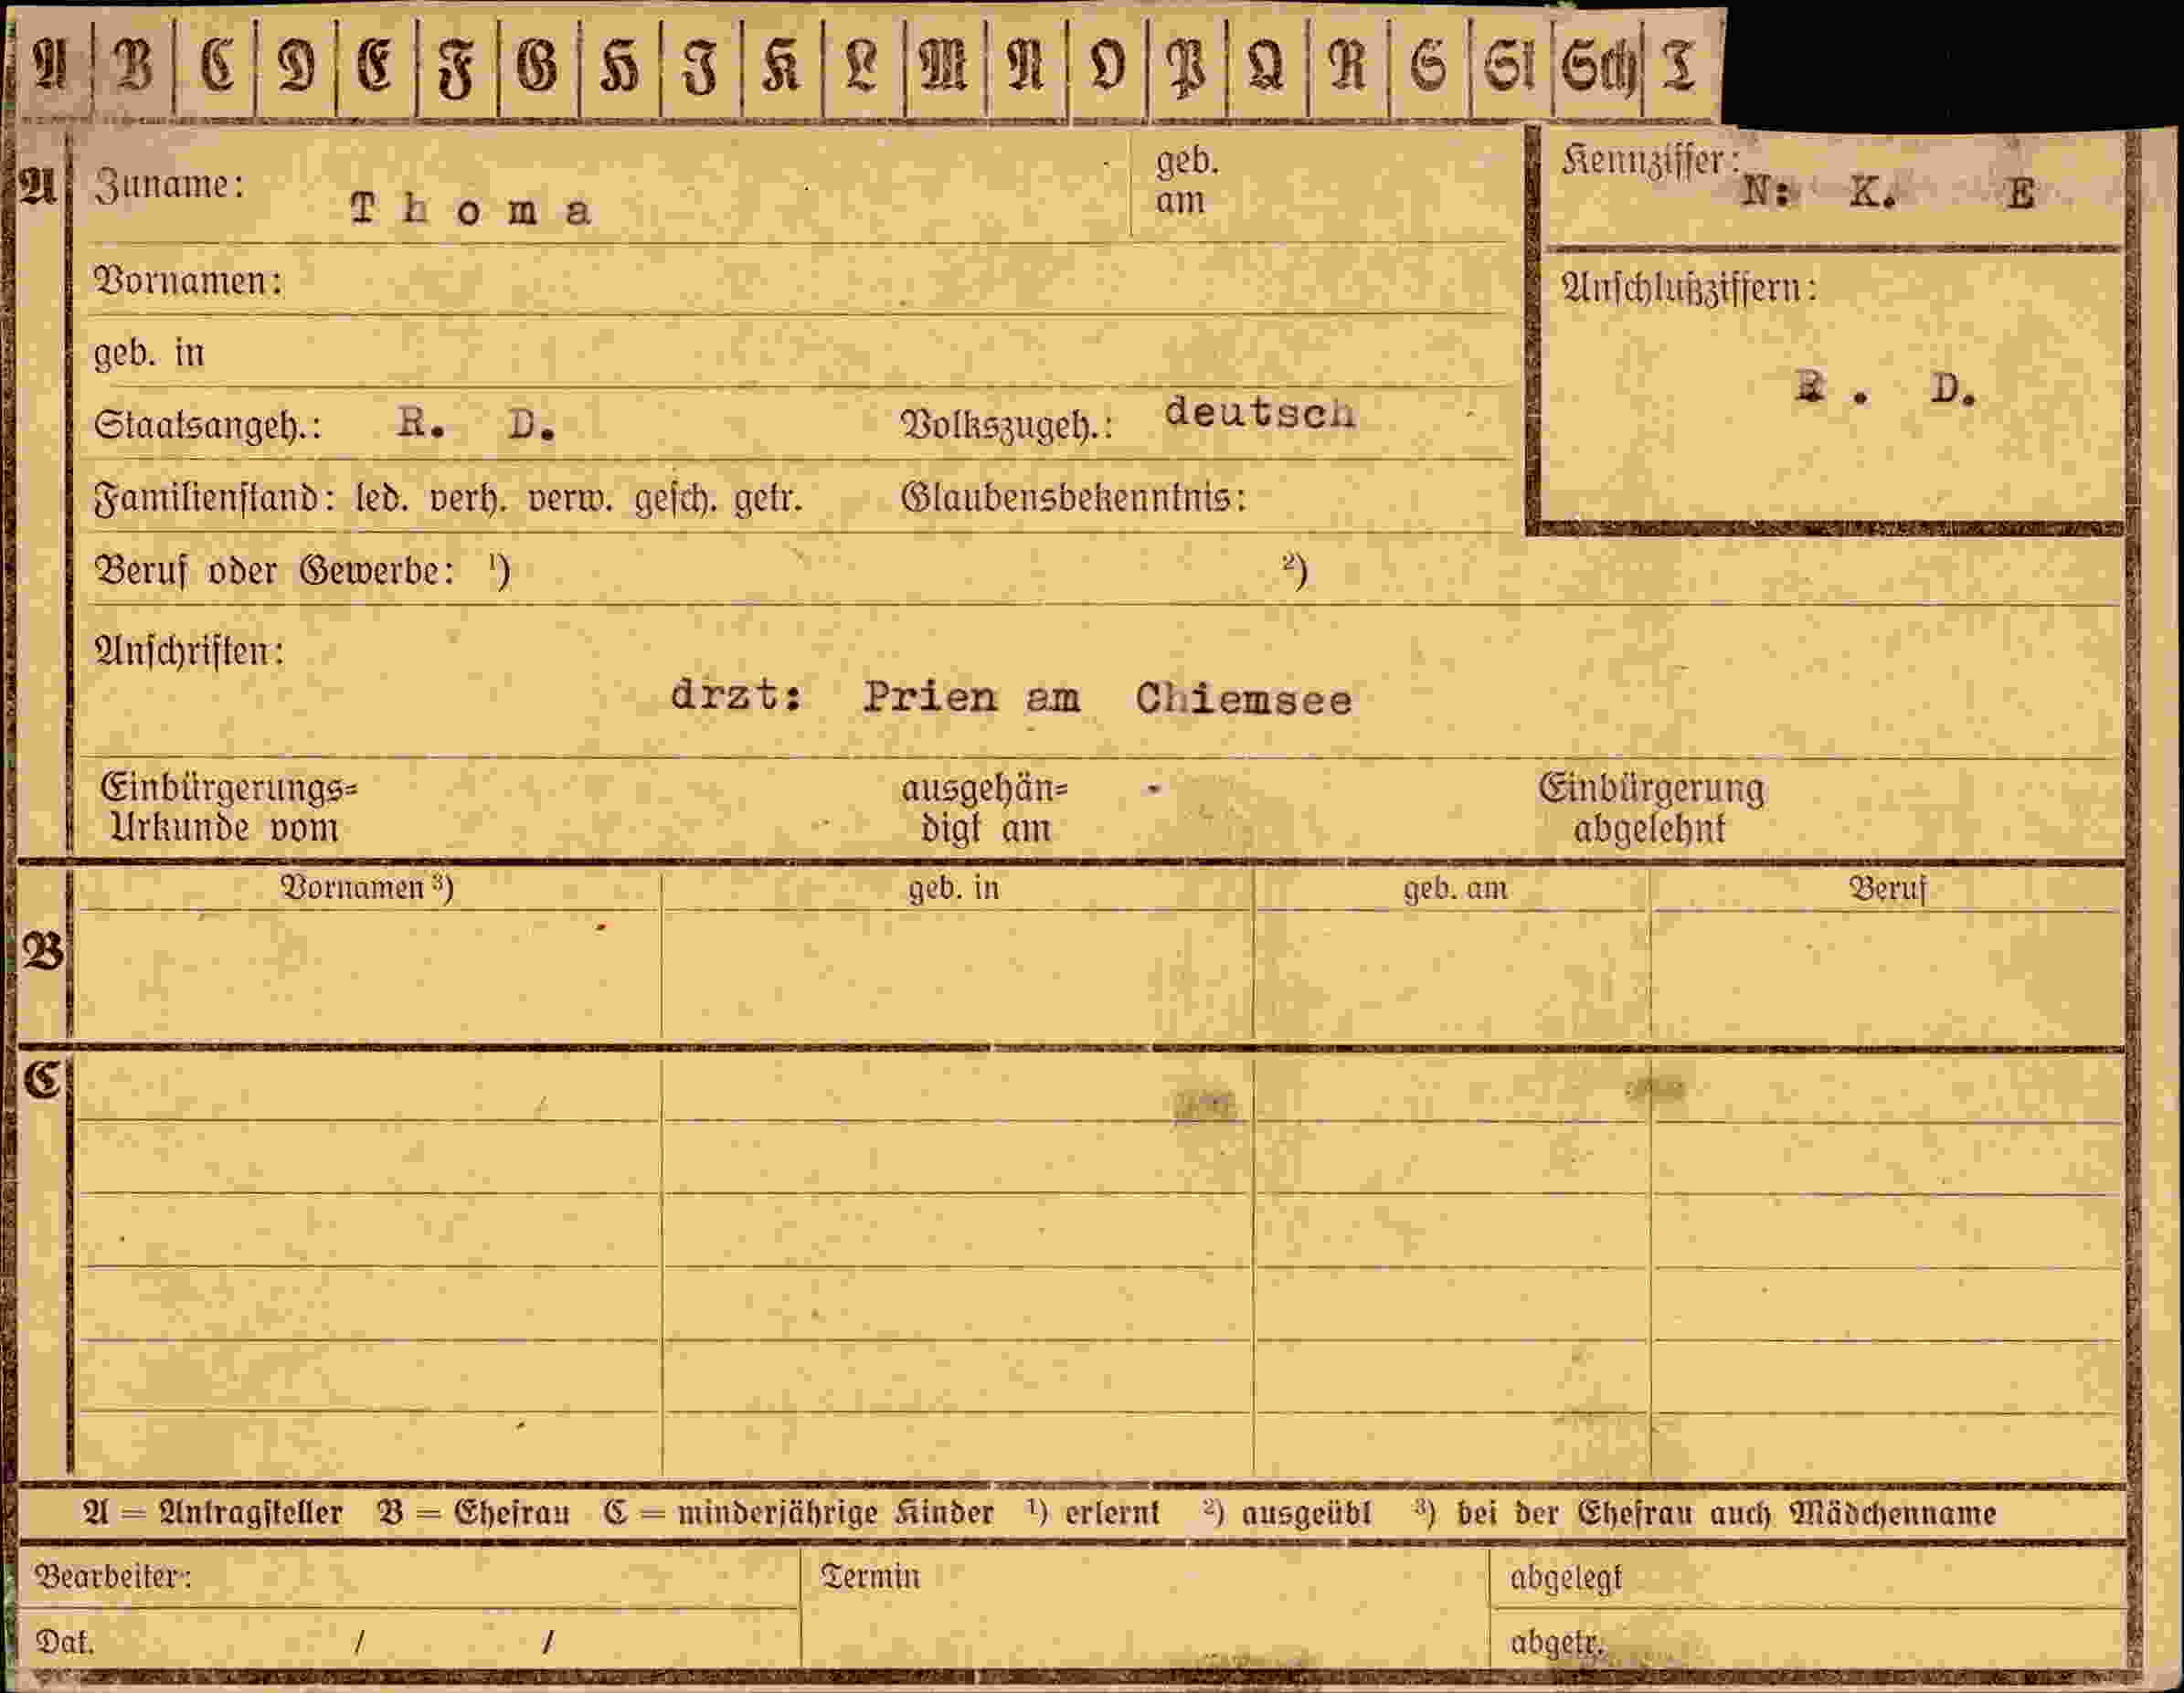 A B C D E F G H I K L M N O P Q R S St Sch T
A Zuname: Thoma geb. am Kennziffer: N: K. E
Vornamen: Anschlußziffern:
geb. in
R. D.
Staatsangeh.: R. D. Volkszugeh.: deutsch
Familienstand: led. verh. verw. gesch. getr. Glaubensbekenntnis:
Beruf oder Gewerbe: ¹) ²)
Anschriften:
drzt: Prien am Chiemsee
Einbürgerungs= ausgehän= Einbürgerung
Urkunde vom digt am abgelehnt
Vornamen ³) geb. in geb. am Beruf
B
C
A = Antragsteller B = Ehefrau C = minderjährige Kinder ¹) erlernt ²) ausgeübt ³) bei der Ehefrau auch Mädchenname
Bearbeiter: Termin abgelegt
Dat. / / abgetr.